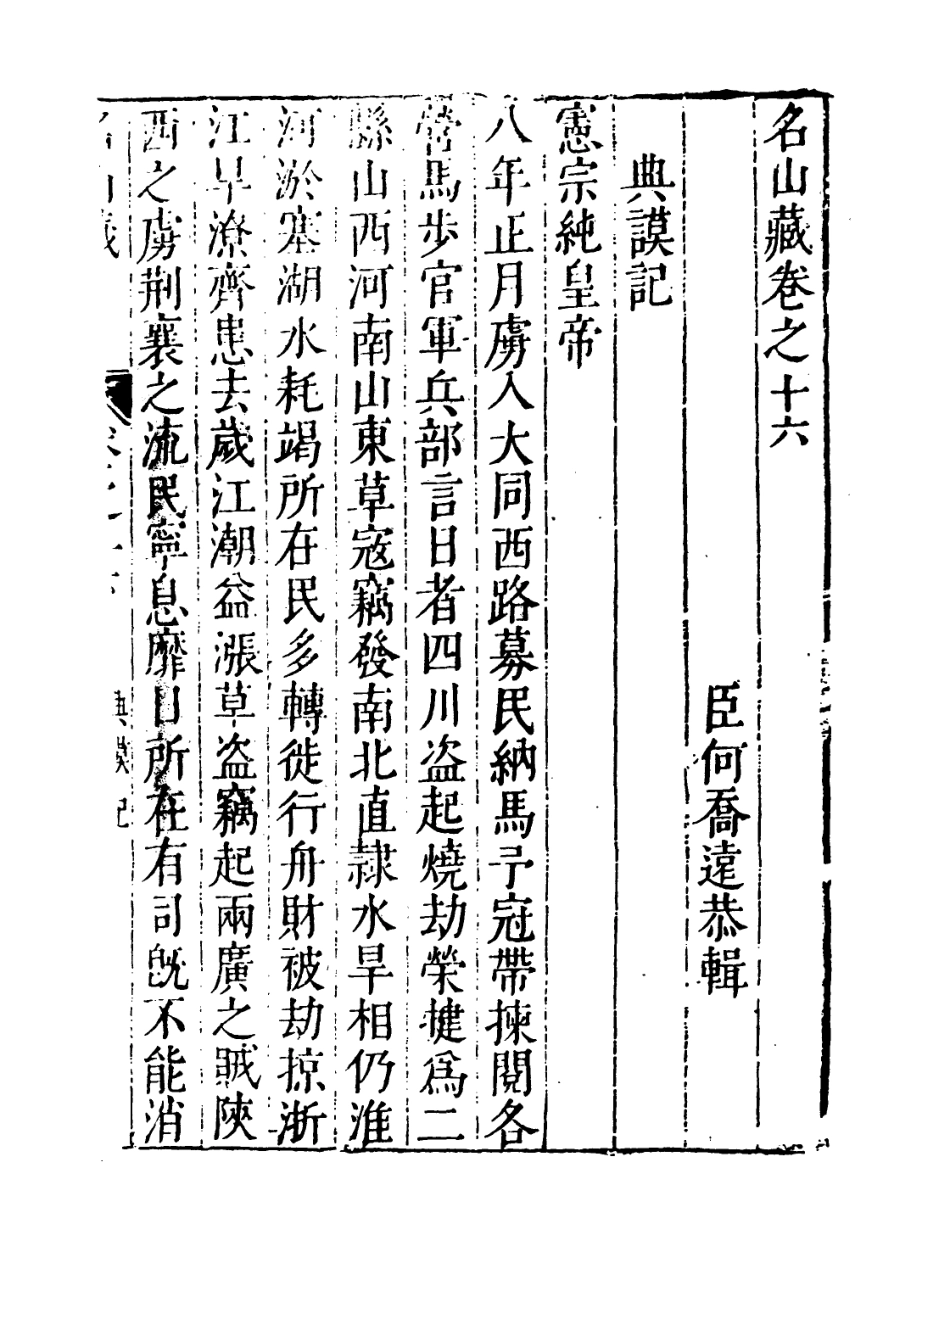 名山藏卷之十六
臣何喬遠恭輯
典謨記
憲宗純皇帝
八年正月虜入大同西路募民納馬予冠帶揀閱各
營馬步官軍兵部言日者四川盗起燒劫榮㨴爲二
縣山西河南山東草寇竊發南北直隷水旱相仍淮
河淤塞湖水耗竭所在民多轉徙行舟財被劫掠浙
江旱潦齊患去歲江潮益漲草盗竊起兩廣之賊陝
西之虜荆襄之流民寧息靡日所在有司旣不能消
名山藏
典謨記